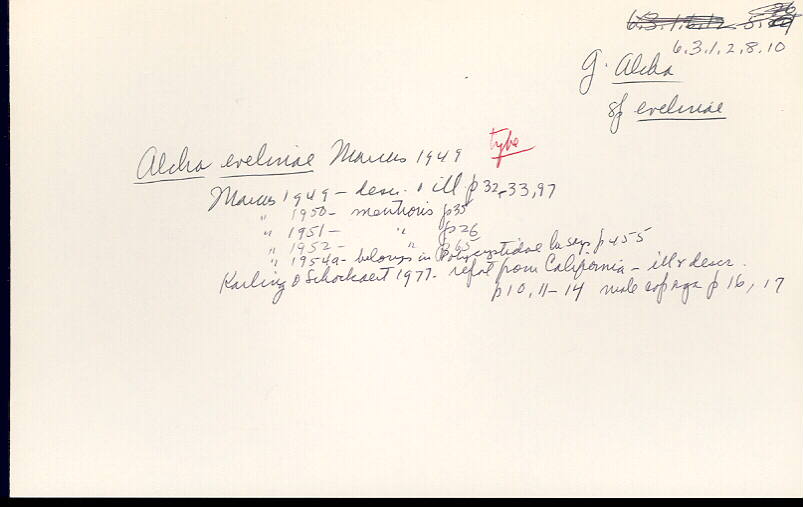 6.3.1.2.8.10
G. Alcha
sp evelinae
Alcha evelinae Marcus 1949 type
Marcus 1949 - descr. & ill p 32, 33, 97
" 1950 - mentions p35
" 1951 - " p26
" 1952 - " p65
" 1954a - belongs in Polycystidae he says p 455
Karling & Schockaert 1977 - refol from California - ill & descr.
p 10, 11-14 male cop app p 16, 17